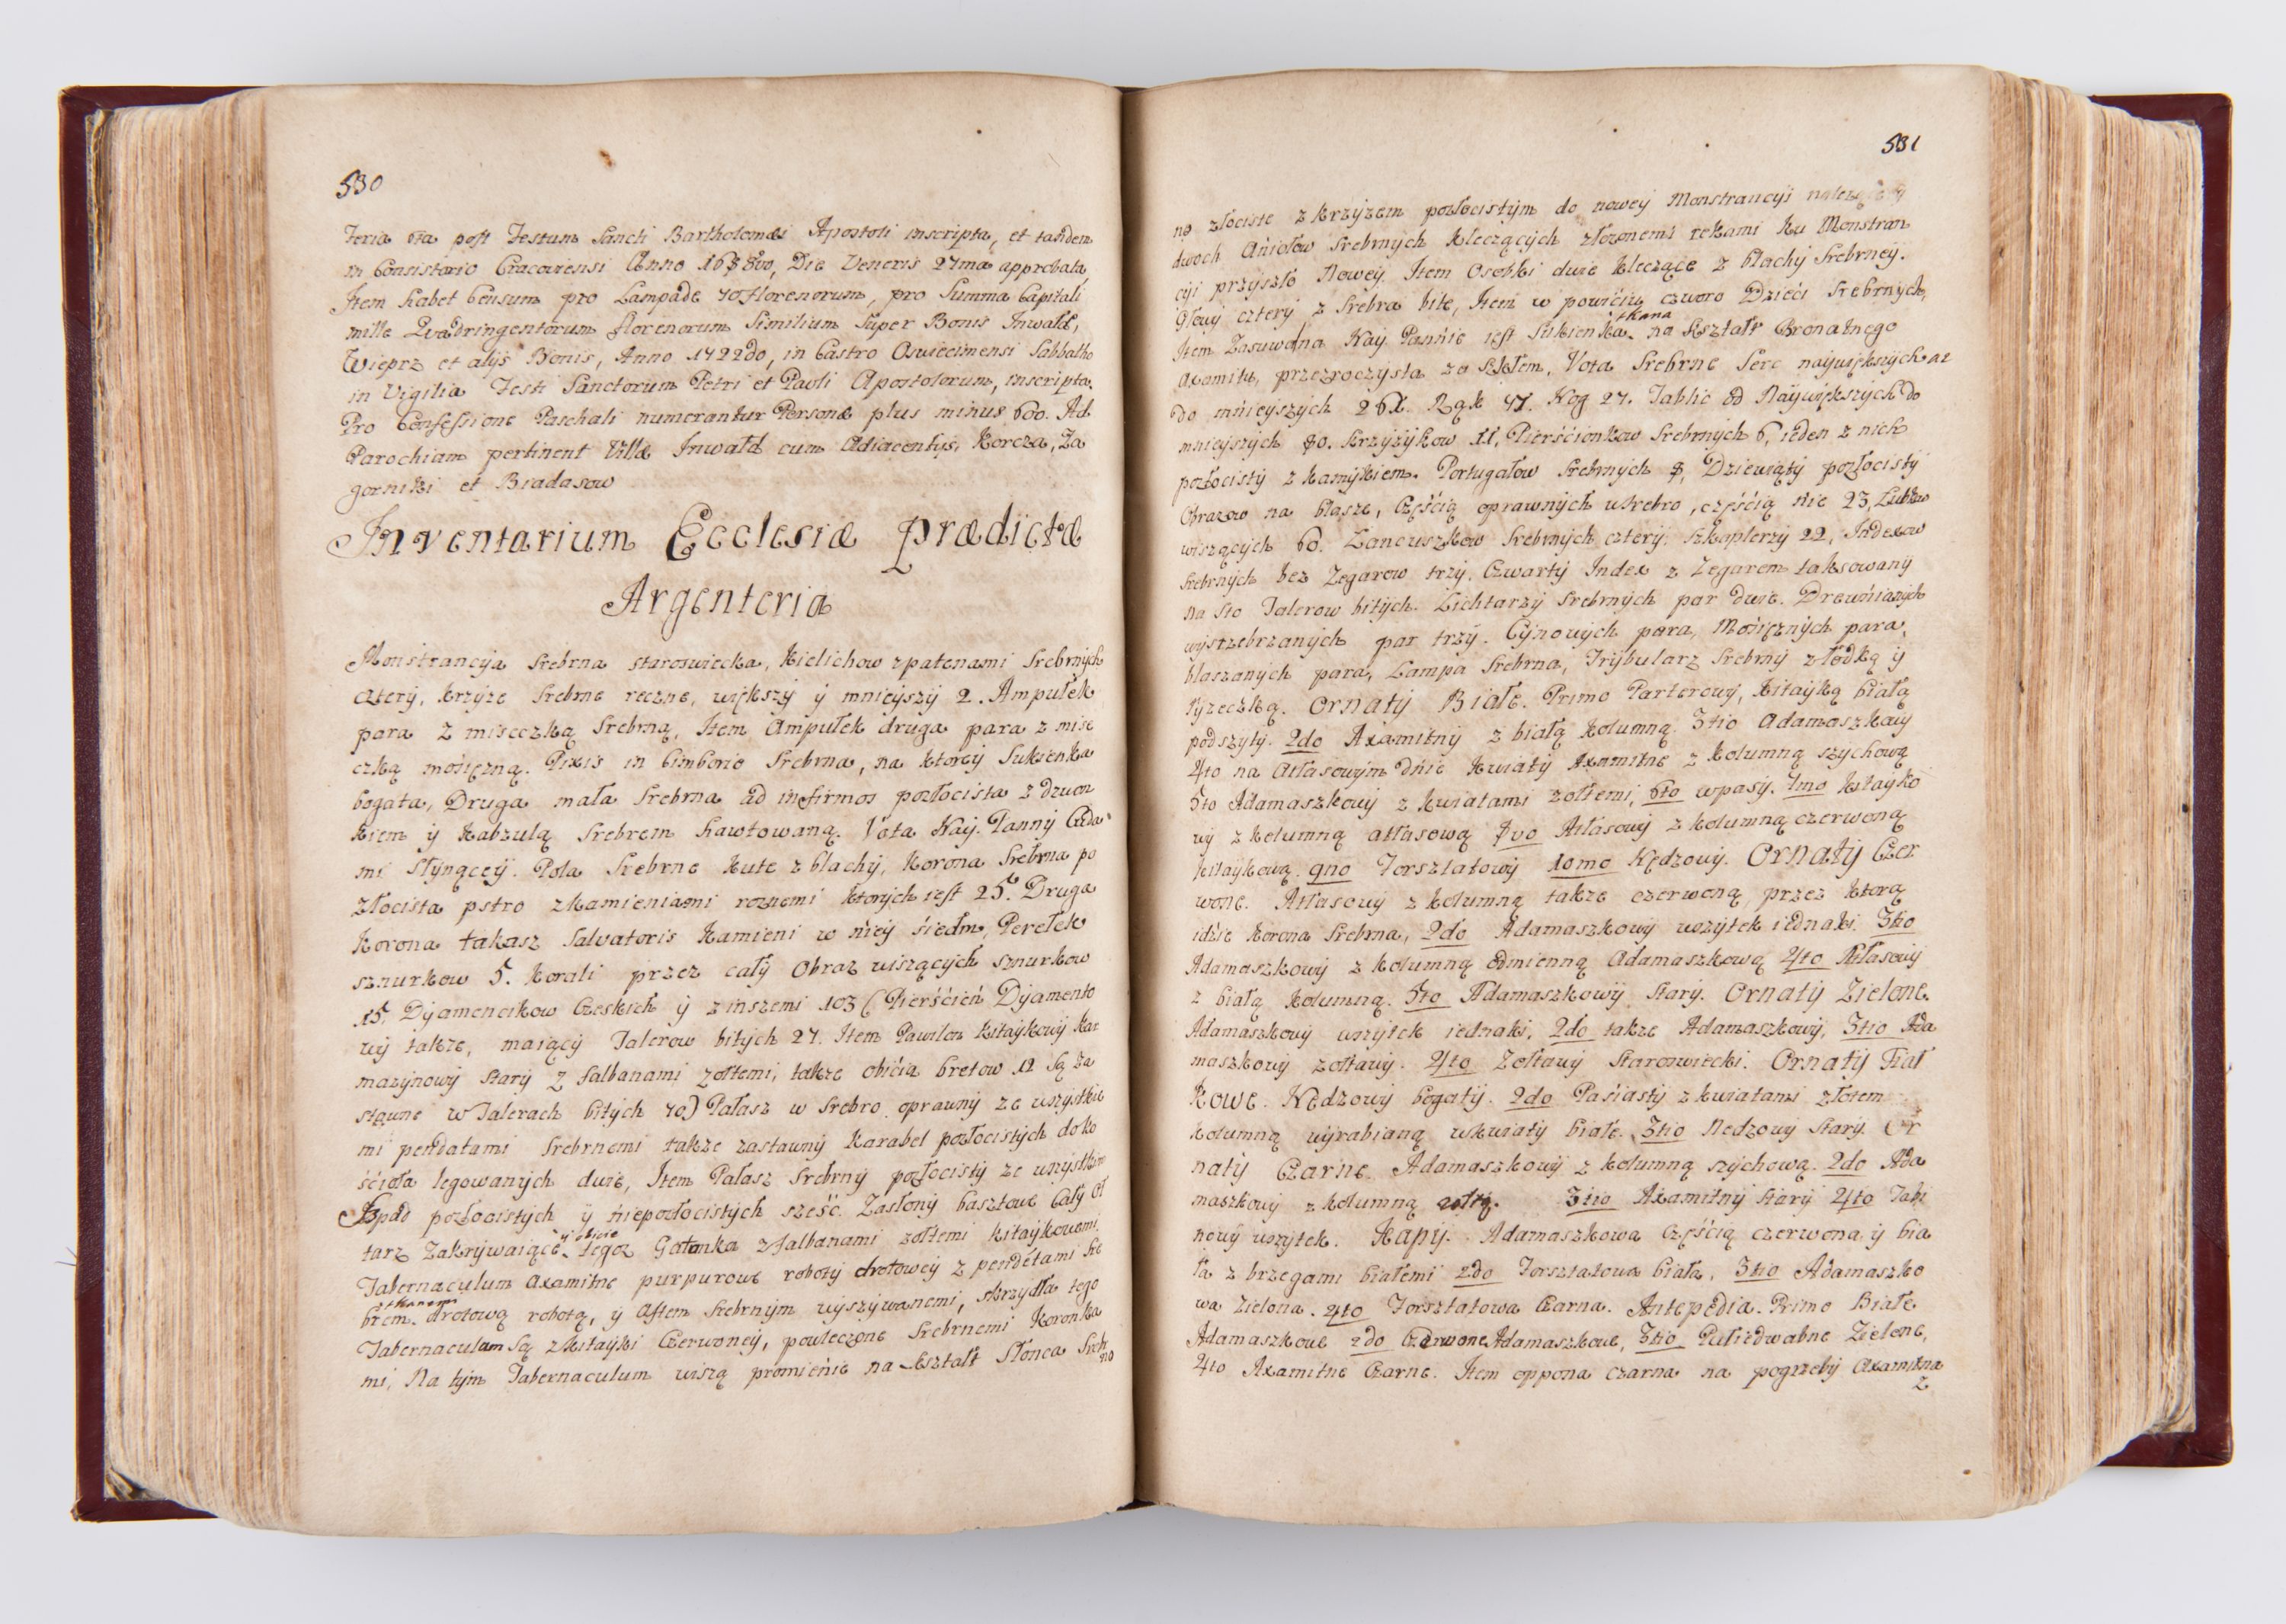 530
Feria 6ta post Festum Sancti Bartholomæi Apostoli inscripta, et tandem
in Consistorio Cracoviensi Anno 1688vo, Die Veneris 27ma approbata
Item habet Censum pro Lampade 70 florenorum, pro Summa Capitali
mille Quadringentorum florenorum Similium Super Bonis Inwałd,
Wieprz et alijs Bonis, Anno 1722do, in Castro Oswiecimensi Sabbatho
in Vigilia Festi Sanctorum Petri et Pavli Apostolorum, inscripta.
Pro Confessione Paschali numerantur Personæ plus minus 600. Ad
Parochiam pertinent Villæ Inwałd cum Adiacentijs, Korcza, Za
gorniki et Biadasow
Inventarium Ecclesiæ prædictæ
Argenteria
Monstrancyja Srebrna staroswiecka, Kielichow z patenami Srebrnych
cztery, krzyze Srebrne reczne, większy ÿ mnieyszy 2. Ampułek
para z miseczką Srebrną, Item Ampułek druga para z mise
czką mosięzną. Pixis in Cimborio Srebrna, na ktorey Sukienka
bogata, Druga mała Srebrna ad infirmos pozłocista z dzwon
kiem ÿ Kabzulą Srebrem hawtowaną. Vota Nay. Panny Cuda
mi Słynącey. Pola Srebrne kute z blachy, Korona Srebrna po
złocista pstro z kamieniami roznemi ktorych iest 25. Druga
Korona takasz Salvatoris Kamieni w niey siedm, Perełek
sznurkow 5. Korali przez cały Obraz wiszących sznurkow
15. Dyamencikow Czeskich ÿ z inszemi 103 (Pierścień Dyamento
wy takze, maiący Talerow bitych 27. Item Pawilon kitaykowy kar
mazynowy stary z falbanami zołtemi, takze obicia bretow 12 Są Za
stawne w Talerach bitych 70) Pałasz w Srebro oprawny ze wszystkie
mi pendatami Srebrnemi takze zastawny Karabel pozłocistych do ko
ścioła legowanych dwie, Item Pałasz Srebrny pozłocisty ze wszystkim
Szpad pozłocistych ÿ niepozłocistych sześć. Zasłony basztowe Cały Ol
ÿ obicie
tarz Zakrywaiące, tegoz Gatonka z falbanami zołtemi kitaykowemi
Tabernaculum axamitne purpurowe roboty drotowey z pendetami Sre
tkanem
brem. drotową robotą, ÿ Aftem Srebrnym wyszywanemi, skrzydła tego
Tabernaculum Są z kitayki Czerwoney, powleczone Srebrnemi Koronka
mi, Na tym Tabernaculum wiszą promienie na kształt Słonca Sreb
no
531
no złociste z krzyzem pozłocistym do nowey Monstrancyi
dwoch Aniołow Srebrnych kleczących złozonemi rekami ku Monstran
cyi przyszło Nowey. Item Osobki dwie kleczące z blachy Srebrney.
Głowy cztery z Srebra bite, Item w powiciu czworo Dzieci Srebrnych,
tkana
Item Zasuwana Nay Pannie iest Sukienka na kształt Bronatnego
Axamitu, przezroczysta za Szkłem, Vota Srebrne Serc naywiększych az
do mnieyszych 261. Rąk 47. Nog 27. Tablic od Naywiększych do
mnieyszych 80. Krzyzykow 11, Pierścionkow Srebrnych 6, ieden z nich
pozłocisty z kamykiem. Portugałow Srebrnych 8, Dziewiąty pozłocisty
Obrazow na blasze, Częścią oprawnych w Srebro, częścią nie 23,
wiszących 60. Lancuszkow Srebrnych cztery. Szkaplerzy 22, Indexow
Srebrnych bez Zegarow trzy. Czwarty Index z Zegarem taksowany
na Sto Talerow bitych. Lichtarzy Srebrnych par dwie. Drewnianych
wysrzebrzanych par trzy. Cynowych para, Mosięznych para,
blaszanych para, Lampa Srebrna, Trybularz Srebrny z łodką ÿ
łyzeczką. Ornaty Białe. Primo Parterowy, Kitayką białą
podszyty. 2do Axamitny z białą kolumną. 3tio Adamaszkowy
4to na Atłasowym dnie kwiaty Axamitne z kolumną szychową
5to Adamaszkowy z kwiatami zołtemi, 6to w pasy. 7mo Kitayko
wy z kolumną atłasową 8vo Atłasowy z kolumną czerwoną
kitaykową. 9no Forsztatowy 10mo Nędzowy. Ornaty Czer
wone. Atłasowy z kolumną takze czerwoną, przez ktorą
idzie korona Srebrna, 2do Adamaszkowy wszytek iednaki. 3tio
Adamaszkowy z kolumną odmienną Adamaszkową 4to Atłasowy
z białą kolumną. 5to Adamaszkowy Stary. Ornaty Zielone.
Adamaszkowy wszytek iednaki, 2do takze Adamaszkowy, 3tio Ada
maszkowy zołtawy. 4to Zołtawy Staroswiecki. Ornaty Fiał
kowe. Nędzowy bogaty. 2do Pasiasty z kwiatami złotem
kolumną wyrabianą w kwiaty białe. 3tio Nedzowy Stary. Or
naty Czarne. Adamaszkowy z kolumną szychową. 2do Ada
maszkowy z kolumną zołtą. 3tio Axamitny Stary 4to Tabi
nowy wszytek. Kapy. Adamaszkowa Częścią czerwona ÿ bia
ła z brzegami białemi 2do Forsztatowa biała, 3tio Adamaszko
wa Zielona. 4to Forsztatowa Czarna. Antepedia. Primo Białe
Adamaszkowe 2do Czerwone Adamaszkowe, 3tio Pułiedwabne Zielone,
4to Axamitne Czarne. Item oppona czarna na pogrzeby Axamitna
z